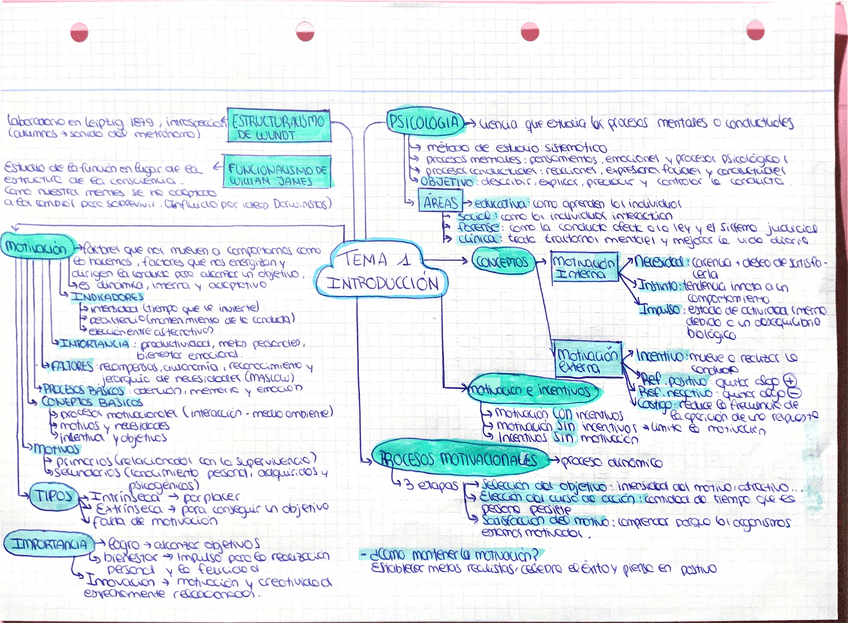 TEMA 1
INTRODUCCIÓN
ESTRUCTURALISMO
DE WUNDT
laboratorio en Leipzig 1879, introspección
(alumnos → sonido del metrónomo)
FUNCIONALISMO DE
WILLIAM JAMES
Estudio de la función en lugar de la
estructura de la consciencia.
Como nuestra mente se ha adaptado
a la cambiar para sobrevivir. (Influido por ideas Darwinistas)
PSICOLOGIA → ciencia que estudia los procesos mentales o conductuales
método de estudio sistemático
procesos mentales: pensamientos, emociones y procesos psicológicos
procesos conductuales: reacciones, expresiones faciales y conductuales
OBJETIVO: describir, explicar, predecir y controlar la conducta.
ÁREAS → educativa: como aprenden los individuos
social: como los individuos interactúan
forense: como la conducta afecta a la ley y el sistema judicial
clínica: trata trastornos mentales y mejorar la vida diaria
MOTIVACIÓN → factores que nos mueven a comportarnos como
lo hacemos, factores que nos energizan y
dirigen la conducta para alcanzar un objetivo,
es dinámica, interna y adaptativa
INDICADORES
intensidad (tiempo que se invierte)
persistencia (mantenimiento de la conducta)
elección entre alternativas
IMPORTANCIA: productividad, metas personales,
bienestar emocional.
FACTORES: recompensas, autonomía, reconocimiento y
jerarquía de necesidades (MASLOW)
PROCESOS BASICOS: atención, memoria y emoción
CONCEPTOS BASICOS
procesos motivacionales (interacción - medio ambiente)
motivos y necesidades
incentiva y objetivos
Motivos
primarios (relacionados con la supervivencia)
secundarios (crecimiento personal, adquiridos y
psicogénicos)
TIPOS → Intrínseca → por placer
Extrínseca → para conseguir un objetivo
falta de motivación
IMPORTANCIA → logro → alcanzar objetivos
bienestar → impulso para la realización
personal y la felicidad
Innovación → motivación y creatividad
estrechamente relacionadas.
CONCEPTOS
Motivación
Interna
Necesidad: carencia + deseo de satisfa-
cerla
Instinto: tendencia innata a un
comportamiento
Impulso: estado de actividad interna
debido a un desequilibrio
biológico
Motivación
externa
Incentivo: mueve a realizar la
conducta
Ref. positivo: quitar algo +
Ref. negativo: quitar algo -
Castigo: reduce la frecuencia de
la aparición de una respuesta
motivación e incentivos
motivación con incentivos
motivación sin incentivos → limita la motivación
incentivos sin motivación
PROCESOS MOTIVACIONALES → proceso dinámico
3 etapas → Selección del objetivo: intensidad del motivo, atractivo...
Elección del curso de acción: cantidad de tiempo que es
persona persiste
Satisfacción del motivo: comprender porque los organismos
estamos motivados.
- ¿Como mantener la motivación?
Establecer metas realistas, celebra el éxito y piensa en positivo